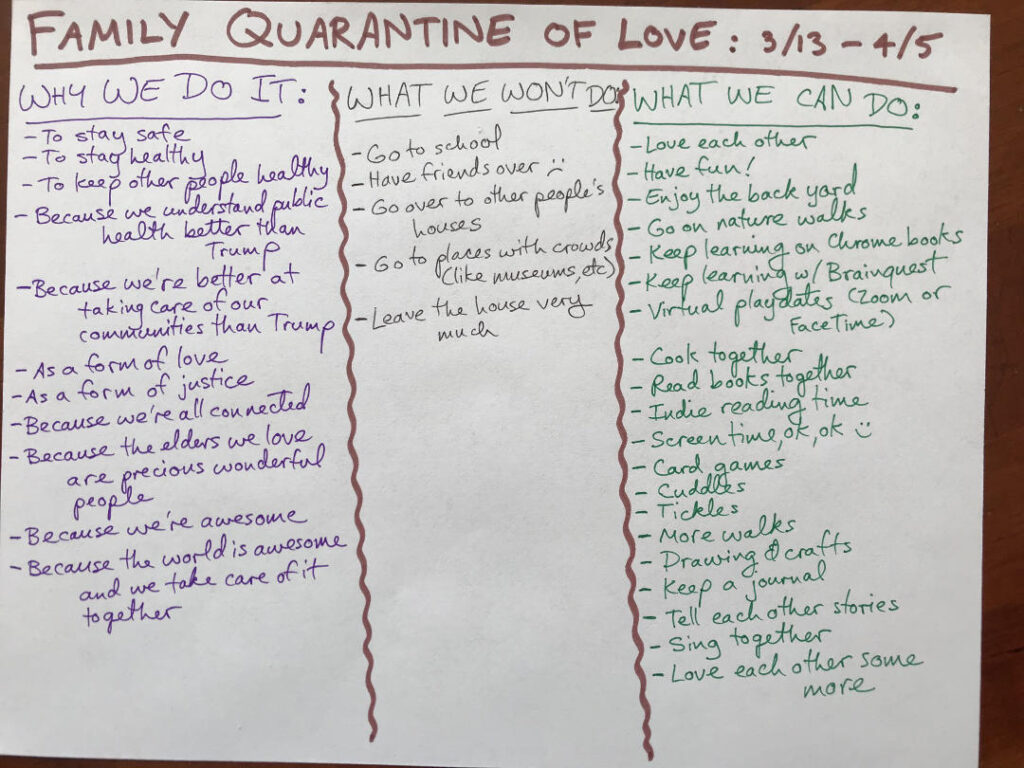 FAMILY QUARANTINE OF LOVE: 3/13 - 4/5
WHY WE DO IT:
- To stay safe
- To stay healthy
- To keep other people healthy
- Because we understand public
health better than
Trump
- Because we're better at
taking care of our
communities than Trump
- As a form of love
- As a form of justice
- Because we're all connected
- Because the elders we love
are precious wonderful
people
- Because we're awesome
- Because the world is awesome
and we take care of it
together
WHAT WE WON'T DO:
- Go to school
- Have friends over :(
- Go over to other people's
houses
- Go to places with crowds
(like museums, etc)
- Leave the house very
much
WHAT WE CAN DO:
- Love each other
- Have fun!
- Enjoy the back yard
- Go on nature walks
- Keep learning on Chromebooks
- Keep learning w/ Brainquest
- Virtual playdates (Zoom or
FaceTime)
- Cook together
- Read books together
- Indie reading time
- Screen time, ok, ok :)
- Card games
- Cuddles
- Tickles
- More walks
- Drawing & crafts
- Keep a journal
- Tell each other stories
- Sing together
- Love each other some
more